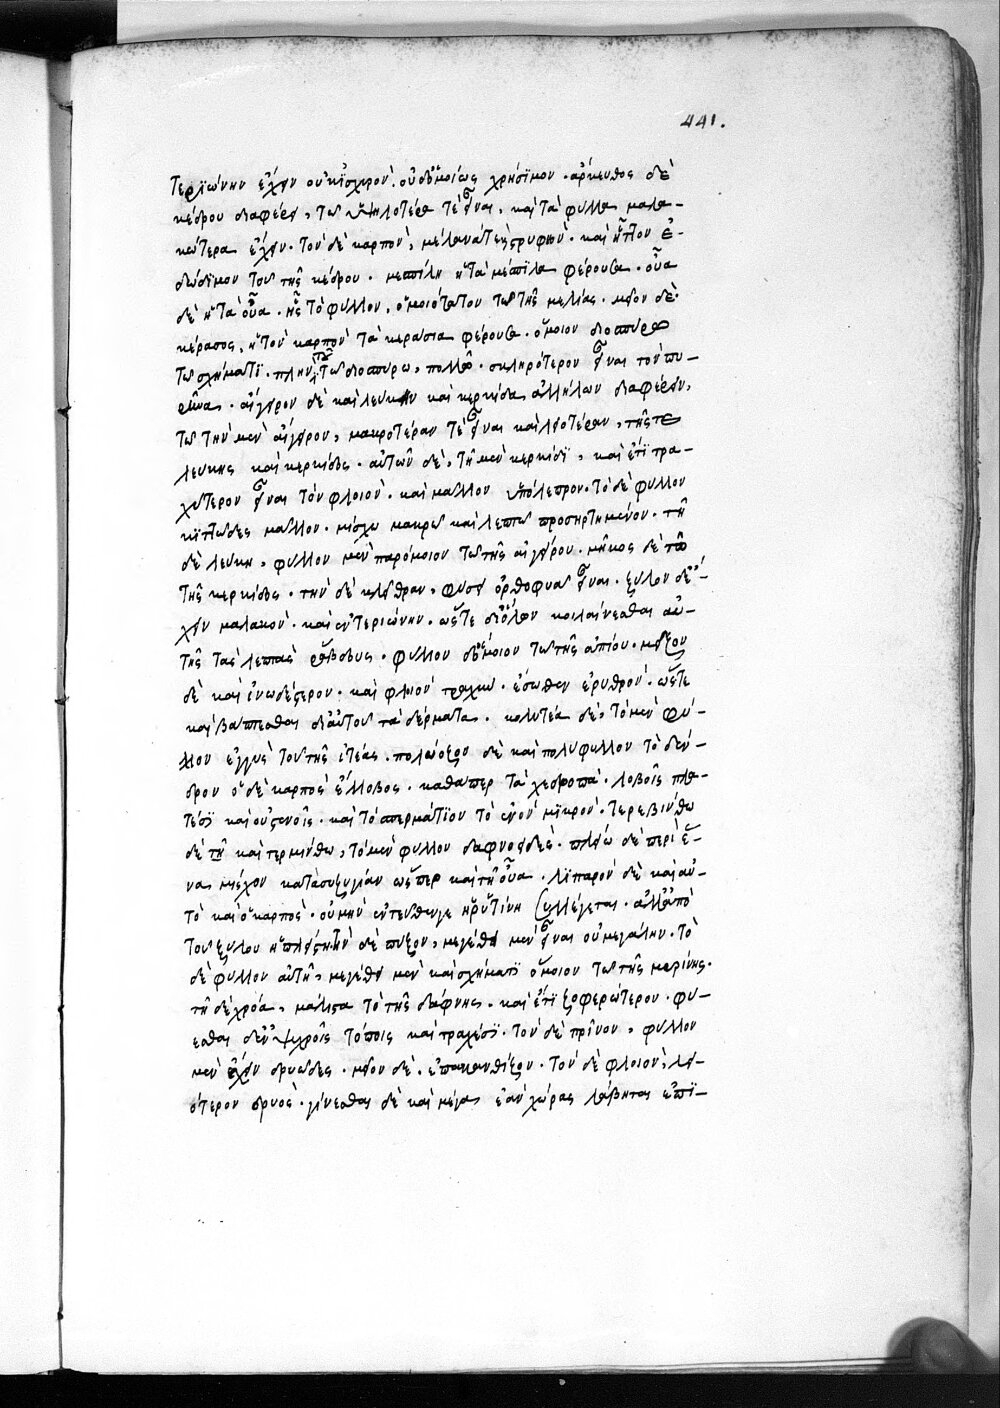 441.
τεριώνην ἔχειν οὐκ ἰσχυρὸν. οὐδ' ὁμοίως χρήσϊμον. ἄρκευθος δὲ
κέδρου διαφέρει, τῶ ὑψηλοτέρα τὲ εἶναι, καὶ τὰ φύλλα μαλα-
κώτερα ἔχειν. τὸν δὲ καρπὸν, μελανα τε καὶ στρυφνὸν. καὶ ἧττον ἐ-
δώδϊμον τοῦ τῆς κέδρου. μεσπίλη ἡ τὰ μέσπϊλα φέρουσα. οὖα
δὲ ἡ τὰ οὖα. ἧς τὸ φύλλον, ὁμοιότατον τῶ τῆς μελίας. μεῖον δὲ.
κέρασος, ἡ τὸν καρπὸν τὰ κεράσια φέρουσα. ὅμοιον διοσπύρω
τῶ σχήματϊ. πλὴν τῶ διοσπύρω, πολλῶ. σκληρότερον εἶναι τὸν πυ-
ρῆνα. αἴγειρον δὲ καὶ λευκὴν καὶ κερκίδα ἀλλήλων διαφέρειν,
τῶ τὴν μὲν αἴγειρον, μακροτέραν τὲ εἶναι καὶ λειοτέραν, τῆς τε
λευκης καὶ κερκίδος. αὐτῶν δὲ, τῆ μὲν κερκίδϊ, καὶ ἐτϊ τρα-
χύτερον εἶναι τὸν φλοιὸν. καὶ μᾶλλον ὑπόλεπρον. τὸ δὲ φύλλον
κϊττῶδες μᾶλλον. μίσχω μακρῶ καὶ λεπτῶ προσηρτημένον. τῆ
δὲ λεύκη, φύλλον μὲν παρόμοιον τῶ τῆς αἰγείρου. μῆκος δὲ τῶ
τῆς κερκίδος. τὴν δὲ κλήθραν, φύσει ὀρθοφυᾶ εἶναι. ξύλον δὲ ἔ-
χειν μαλακὸν. καὶ ἐντεριώνην. ὥστε δι' ὅλων κοιλαίνεσθαι αὐ-
τῆς τὰς λεπτὰς ῥάβδους. φύλλον δ' ὅμοιον τῶ τῆς ἀπίου. μεῖζον
δὲ καὶ ἰνωδέστερον. καὶ φλοιὸν τραχὺν. ἔσωθεν ἐρυθρὸν. ὥστε
καὶ βάπτεσθαι δι' αὐτοῦ τὰ δέρματα. κολυτέα δὲ, τὸ μὲν φύ-
λλον ἐγγὺς τοῦ τῆς ἰτέας. πολύοζον δὲ καὶ πολύφυλλον τὸ δέν-
δρον ὁ δὲ καρπὸς ἔλλοβος. καθάπερ τὰ χεδροπὰ. λοβοῖς πλα-
τέσϊ καὶ οὐ στενοῖς. καὶ τὸ σπερμάτϊον τὸ ἐνὸν μϊκρὸν. τερεβίνθω
δὲ τῆ καὶ τερμίνθω, τὸ μὲν φύλλον δαφνοειδὲς. πλείω δὲ περὶ ἕ-
να μίσχον κατὰ συζυγίαν ὥσπερ καὶ τῆ οὖα. λϊπαρὸν δὲ καὶ αὐ-
τὸ καὶ ὁ καρπὸς. οὐ μὴν ἐντεῦθεν γε ἡ ῥητίνη συλλέγεται. ἀλλ' ἀπὸ
τοῦ ξύλου ἡ πλείστη. τὴν δὲ πύξον, μεγέθει μὲν εἶναι οὐ μεγάλην. τὸ
δὲ φύλλον αὐτῆ, μεγέθει μὲν καὶ σχήματϊ ὅμοιον τῶ τῆς μυρίνης.
τῆ δὲ χρόα, μάλιστα τὸ τῆς δάφνης. καὶ ἔτϊ ζοφερώτερον. φύ-
εσθαι δ' ἐν ψυχροῖς τόποις καὶ τραχέσϊ. τὸν δὲ πρῖνον, φύλλον
μὲν ἔχειν δρυῶδες. μεῖον δὲ, ἐπακανθίζον. τὸν δὲ φλοιὸν, λει-
ότερον δρυὸς. γίνεσθαι δὲ καὶ μέγας ἐὰν χώρας λάβηται ἐπϊ-